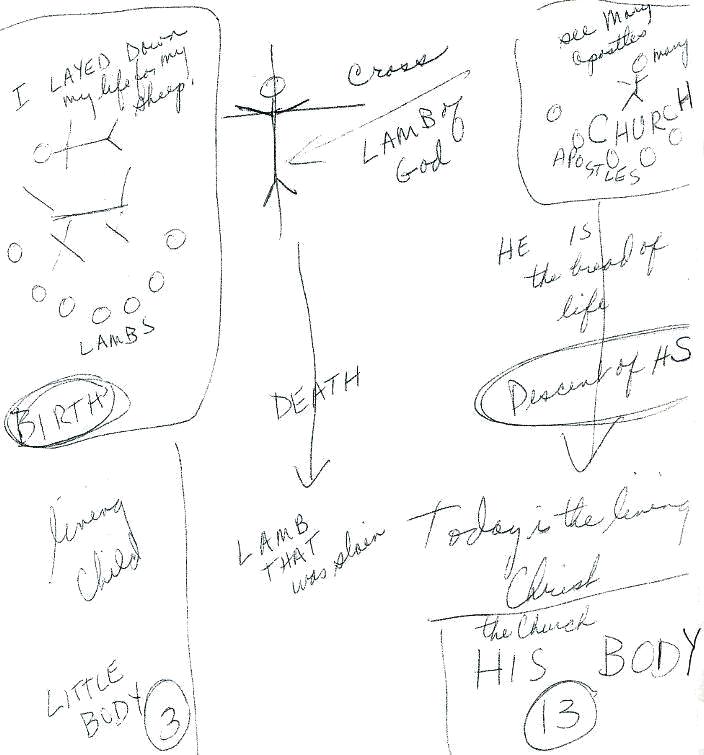 I LAYED Down
my life for my
Sheep!
LAMBS
BIRTH
living
child
LITTLE
BODY
3
Cross
LAMB of
God
DEATH
LAMB
THAT
was slain
see Mary
apostles
Mary
CHURCH
APOSTLES
HE IS
the bread of
life
Descent of HS
Today is the living
Christ
the Church
HIS BODY
13